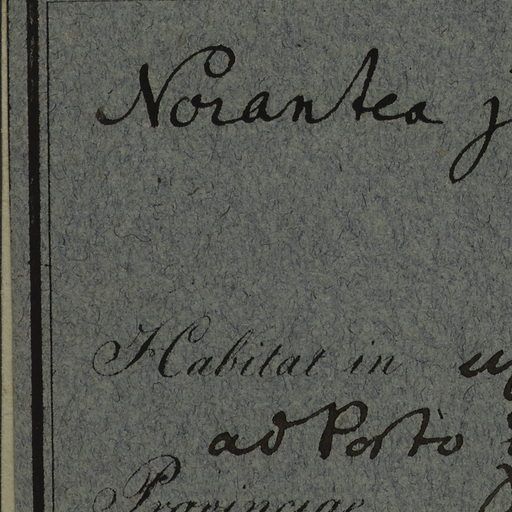 Norantea
Habitat in
ad Porto
Provinciae